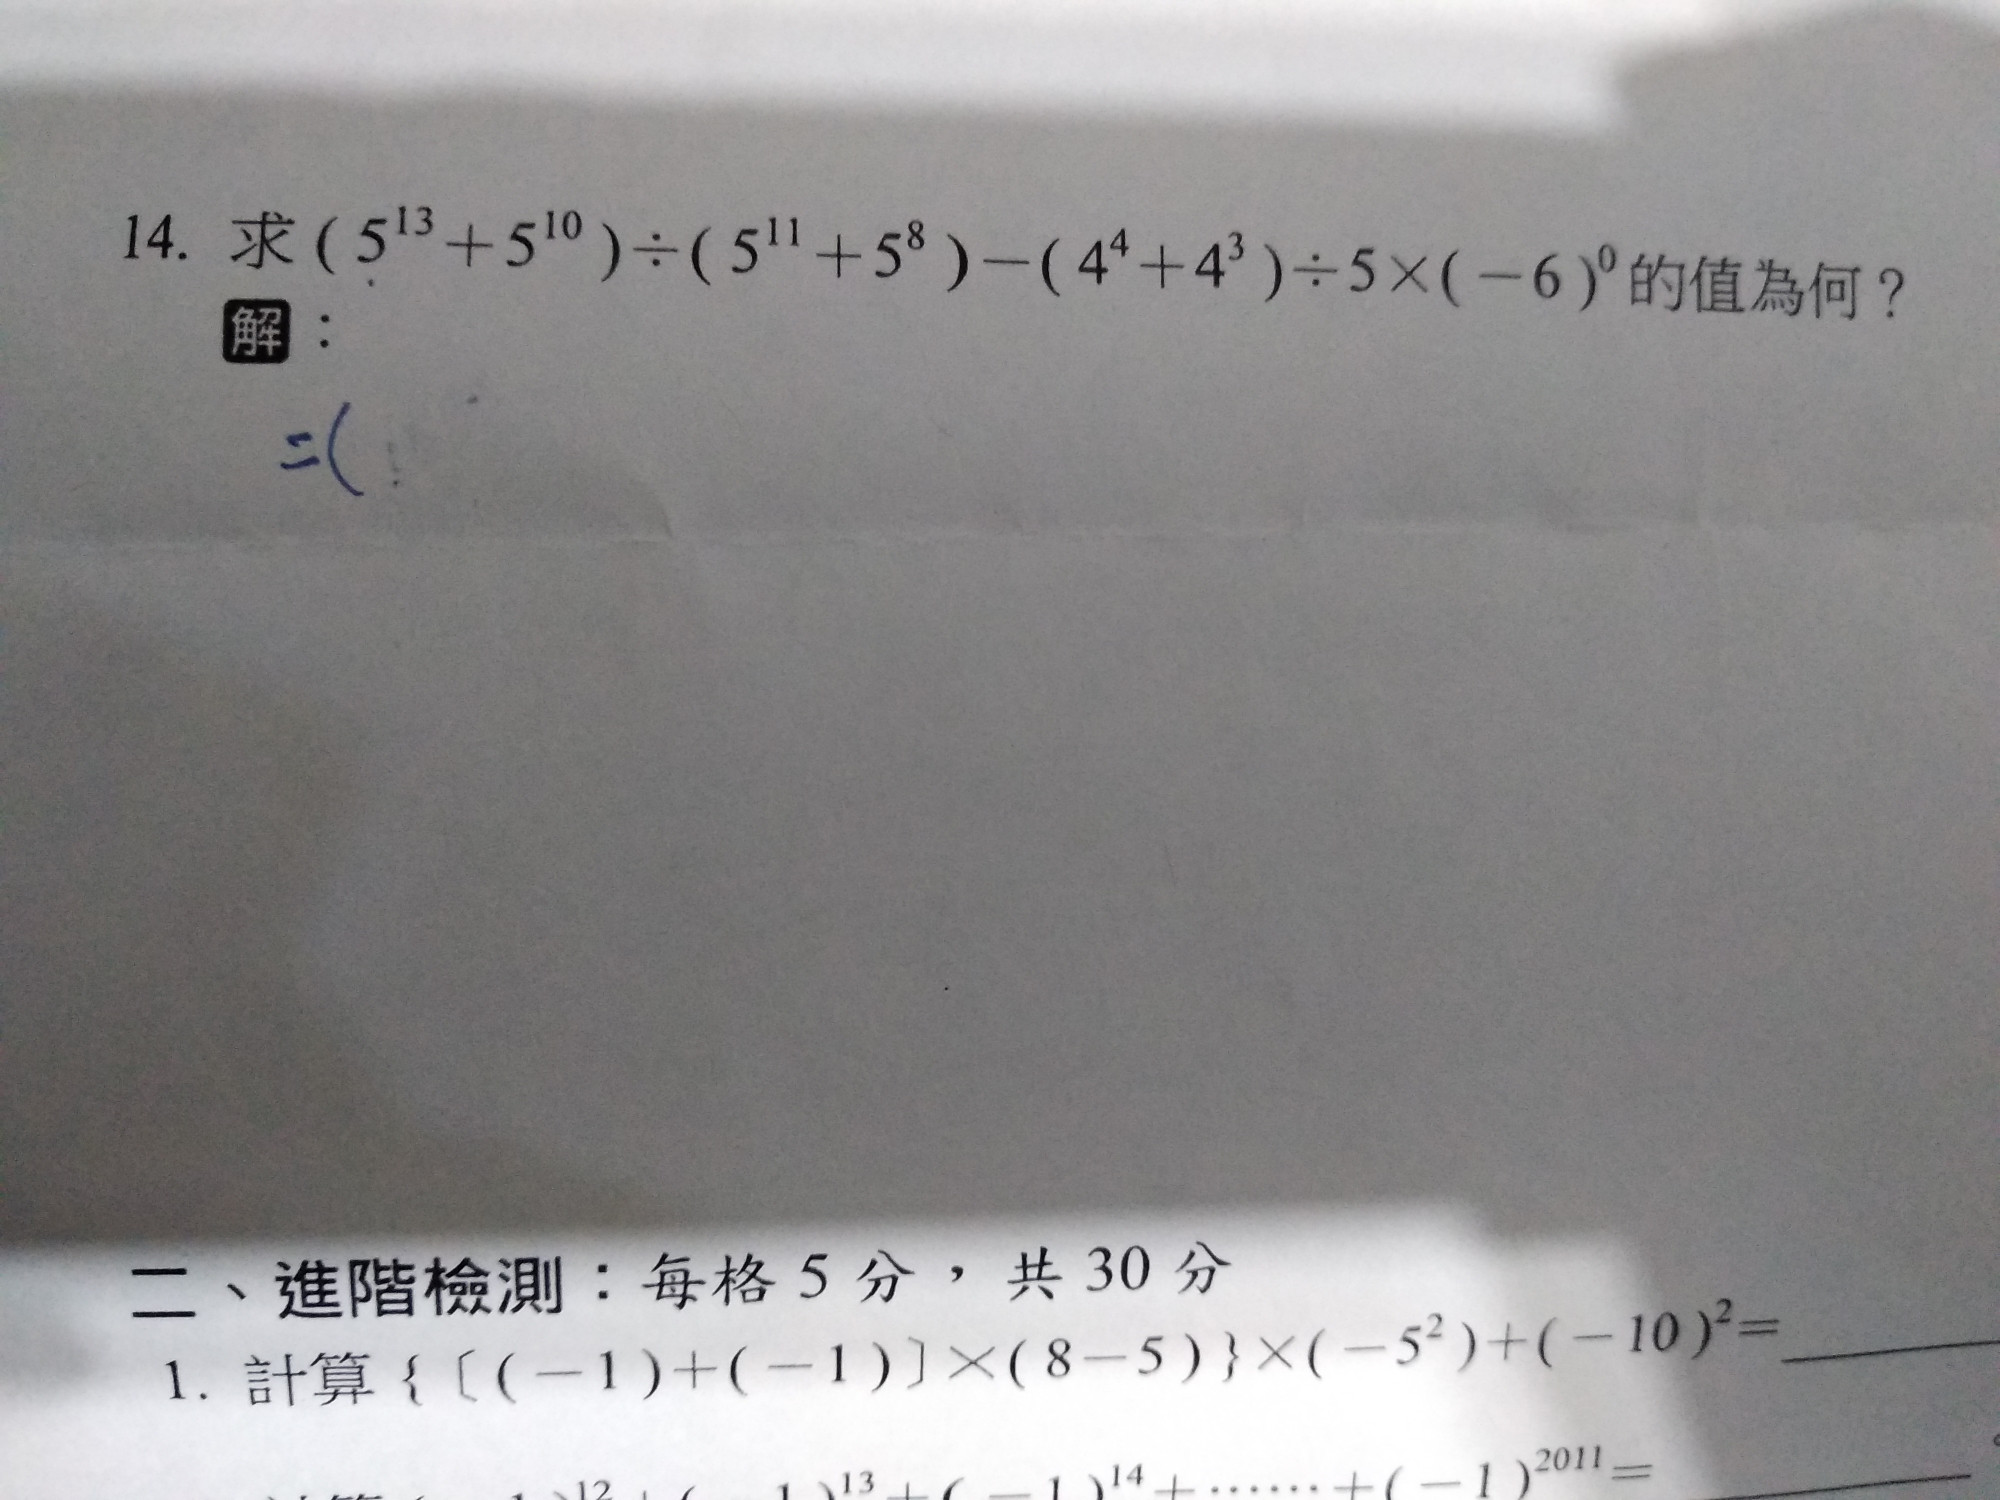 14. 求(5¹³+5¹⁰)÷(5¹¹+5⁸)-(4⁴+4³)÷5×(-6)⁰的值為何?
解:
=(
二、進階檢測:每格5分,共30分
1. 計算{〔(-1)+(-1)〕×(8-5)}×(-5²)+(-10)²=
)¹²+(-1)¹³+(-1)¹⁴+……+(-1)²⁰¹¹=